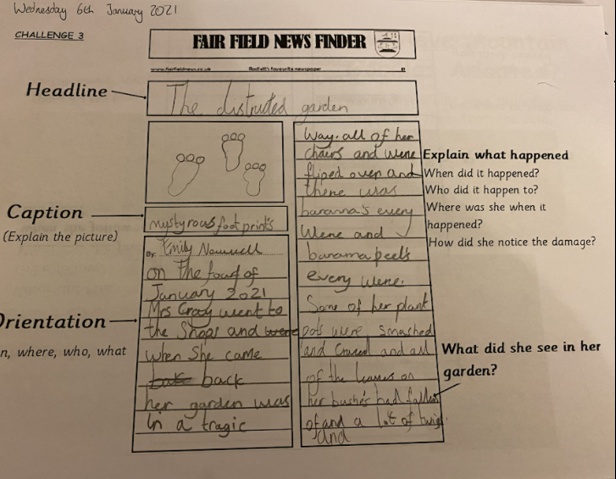 Wednesday 6th January 2021
CHALLENGE 3
FAIR FIELD NEWS FINDER
www.fairfieldnews.co.uk
favourite newspaper
£1
Headline
The distructed garden
Caption
(Explain the picture)
mystyrous foot prints
By Emily
on the fourf of
January 2021
Mrs Grady went to
the Shops and were
when She came
back
her garden was
in a tragic
Orientation
n, where, who, what
Way. all of her
chairs and were
fliped over and
there was
bananna's every
Were and
banana peels
every were.
Some of her plant
pots were smashed
and Craced and all
of the leaves on
her bushes had fallen
of and a lot of twigs
and
Explain what happened
When did it happened?
Who did it happen to?
Where was she when it
happened?
How did she notice the damage?
What did she see in her
garden?